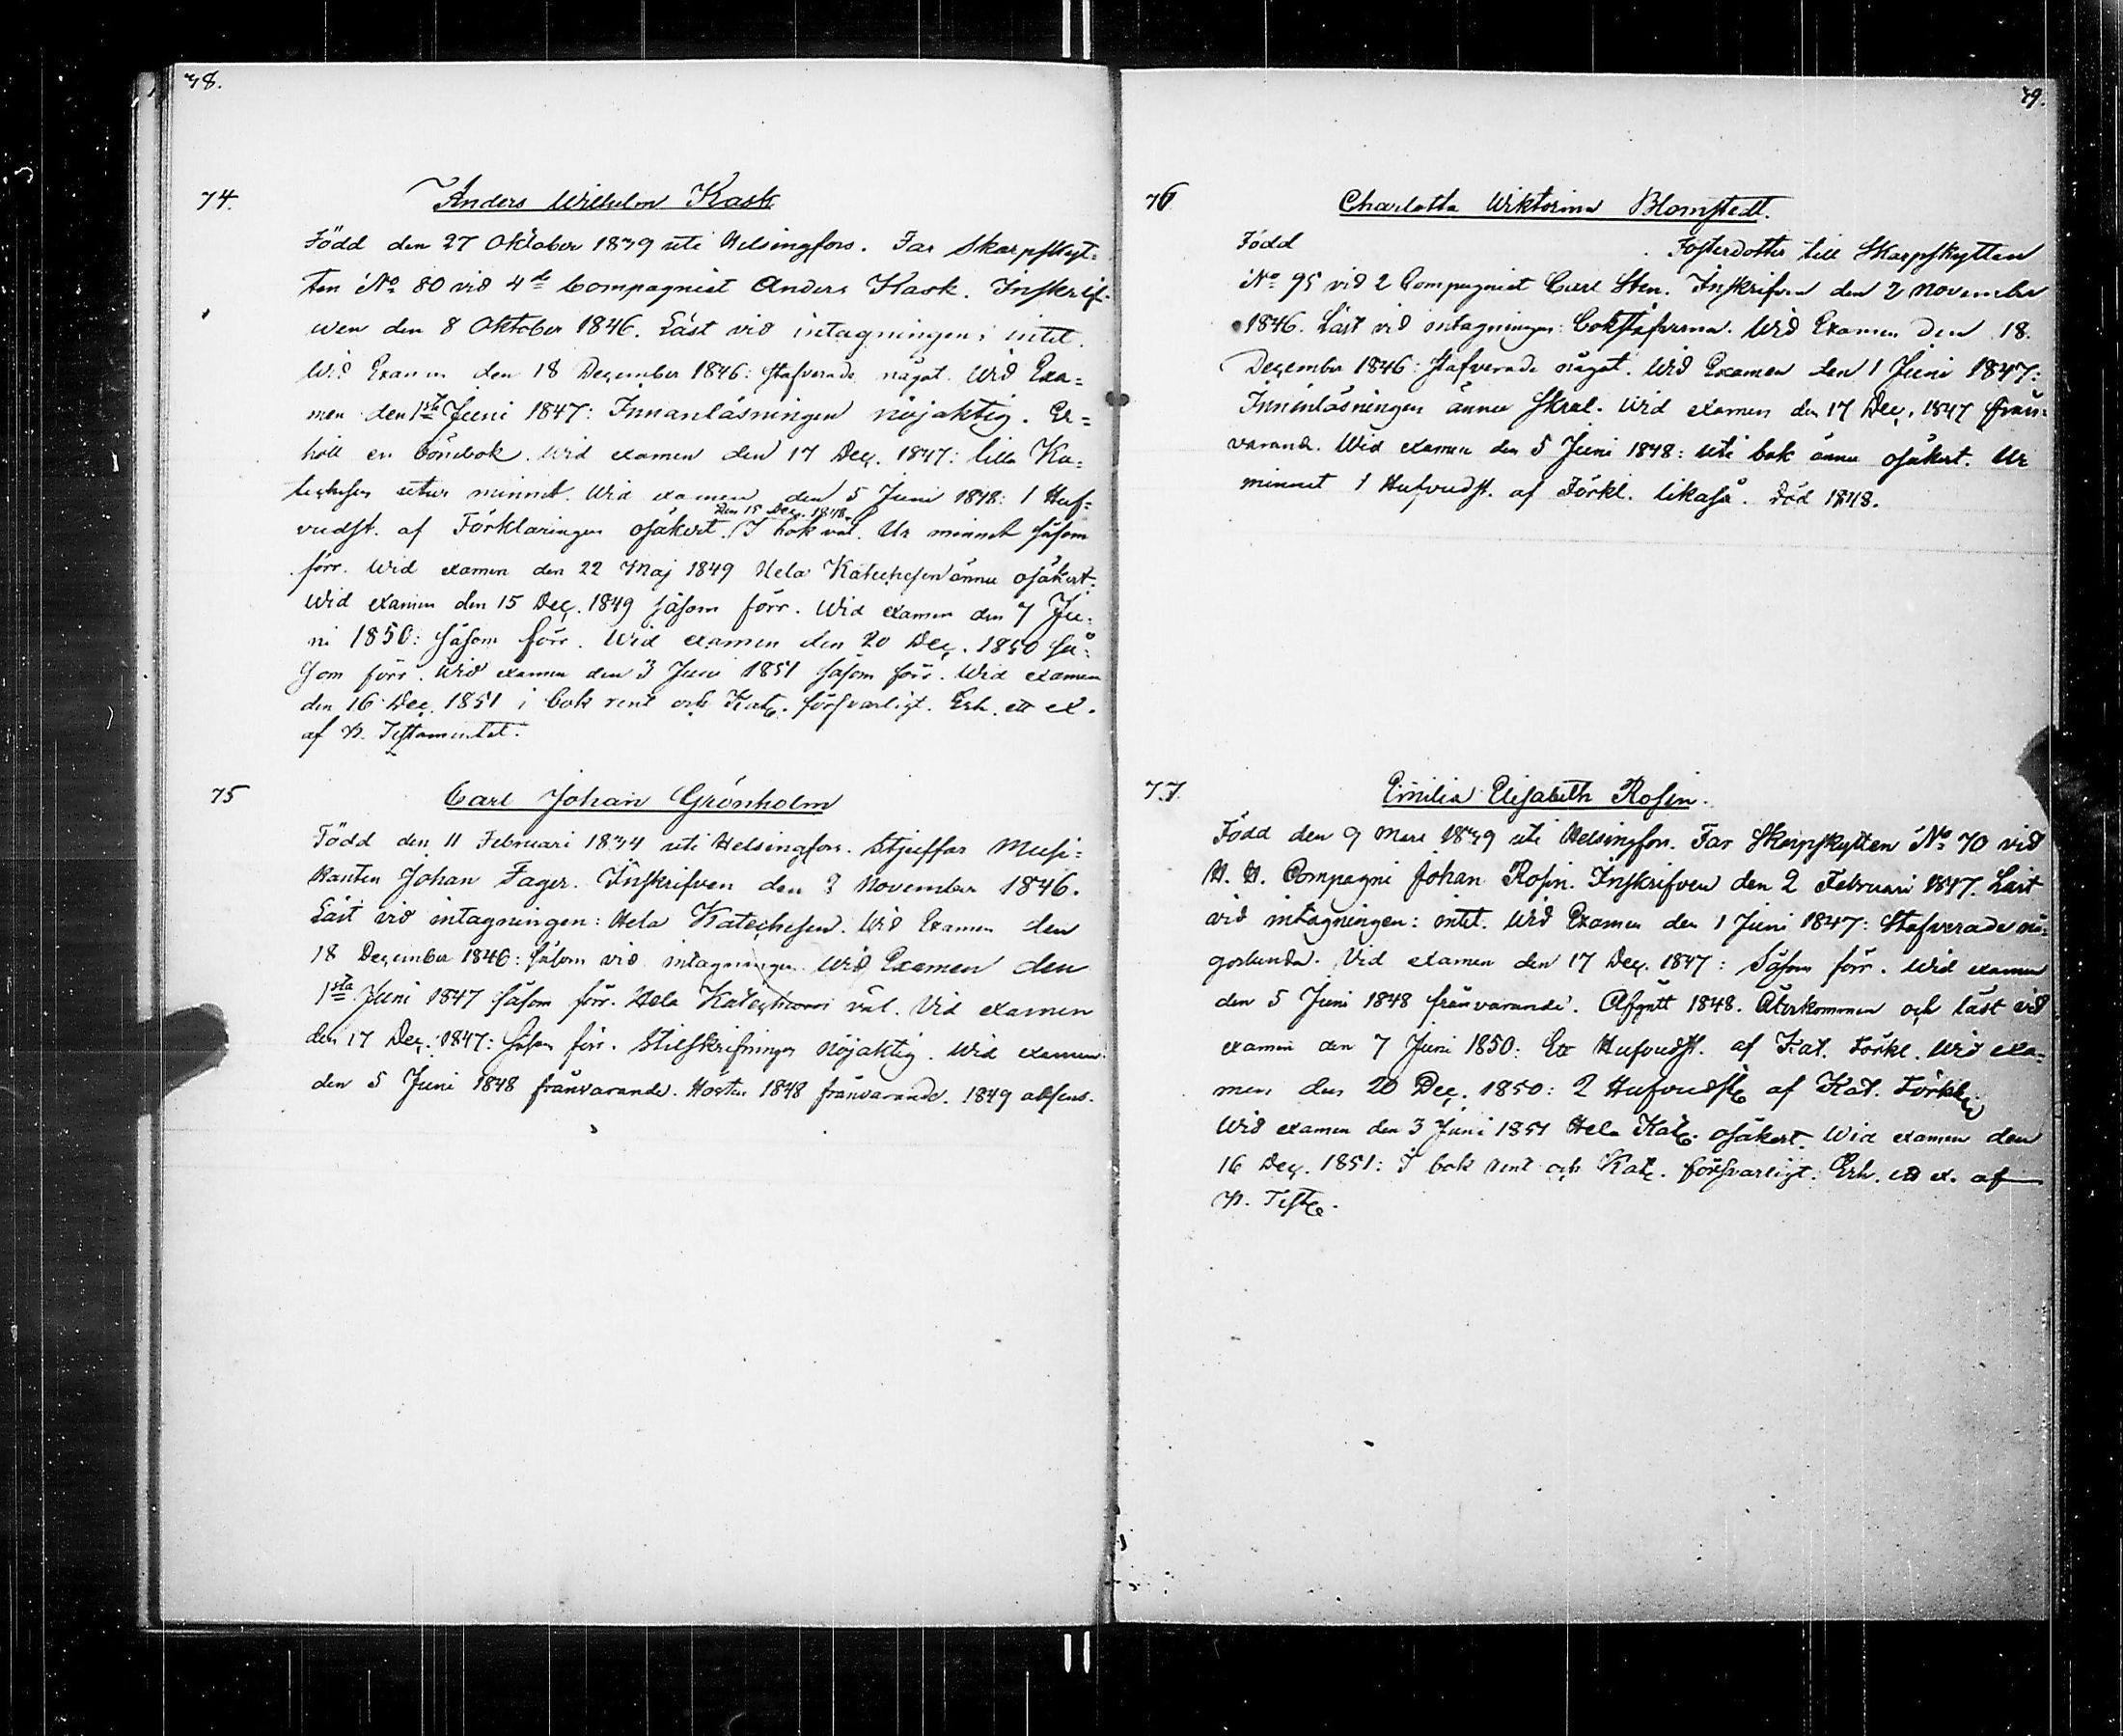 38.
74.
Anders Wilhelm Kask
Född den 27 Oktober 1839 uti Helsingfors. Far Skarpskyt-
ten No 80 vid 4de Compagniet Anders Kask. Inskrif-
wen den 8 Oktober 1846. Läst vid intagningen: intet.
Wid Examen den 18 December 1846: stafverade något. Wid Exa=
men den 1sta Juni 1847: Innanläsningen nöjaktig. Er=
höll en bönebok. Wid examen den 17 Dec. 1847: lilla Ka=
techesen utur minnet. Wid examen den 5 Juni 1848: 1 Huf=
vudst. af Förklaringen osäkert. (Den 15 Dec. 1848. I bok väl. Ur minnet såsom
förr. Wid examen den 22 Maj 1849 Hela Katechesen ännu osäkert.
Wid examen den 15 Dec. 1849 såsom förr. Wid examen den 7 Ju=
ni 1850: såsom förr. Wid examen den 20 Dec. 1850 så=
som förr. Wid examen den 3 Juni 1851 såsom förr. Wid examen
den 16 Dec. 1851 i bok rent och Kat. försvarligt. Erh. ett ex.
af N. Testamentet.
75
Carl Johan Grönholm
Född den 11 Februari 1834 uti Helsingfors. Stjuffar Musi=
kanten Johan Fager. Inskrifven den 2 November 1846.
Läst vid intagningen: Hela Katechesen. Wid Examen den
18 December 1846: såsom vid intagningen. Wid Examen den
1sta Juni 1847 såsom förr. Hela väl. Vid examen
den 17 Dec. 1847: såsom förr. Stilskrifningen nöjaktig. Wid examen
den 5 Juni 1848 frånvarande. Hösten 1848 frånvarande. 1849 absens.
39.
76
Charlotta Wiktorina Blomstedt.
Född Fosterdotter till Skarpskytten
No 95 vid 2 Compagniet Carl Sten. Inskrifven den 2 November
1846. Läst vid intagningen: Bokstäfverna. Wid Examen den 18.
December 1846: stafverade något. Wid Examen den 1 Juni 1847:
Innanläsningen ännu skral. Wid examen den 17 Dec. 1847 från=
varand. Wid examen den 5 Juni 1848: uti bok ännu osäkert. Ur
minnet 1 Hufvudst. af Förkl. likaså. Död 1848.
77.
Emilia Elisabeth Rosin.
Född den 9 Mars 1839 uti Helsingfors. Far Skarpskytten No 70 vid
H. H. Compagni Johan Rosin. Inskrifven den 2 Februari 1847. Läst
vid intagningen: intet. Wid Examen den 1 Juni 1847: Stafverade nå=
gorlunda. Vid examen den 17 Dec. 1847: Såsom förr. Wid examen
den 5 Juni 1848 frånvarande. Afgått 1848. Återkommen och läst vid
examen den 7 Juni 1850: Ett Hufvudst. af Kat. Förkl. Wid exa=
men den 20 Dec. 1850: 2 Hufvudst. af Kat. Förkl.
Wid examen den 3 Juni 1851 Hela Kat. osäkert. Wid examen den
16 Dec. 1851: I bok rent och Kat. försvarligt. Erh. ett ex. af
N. Test.